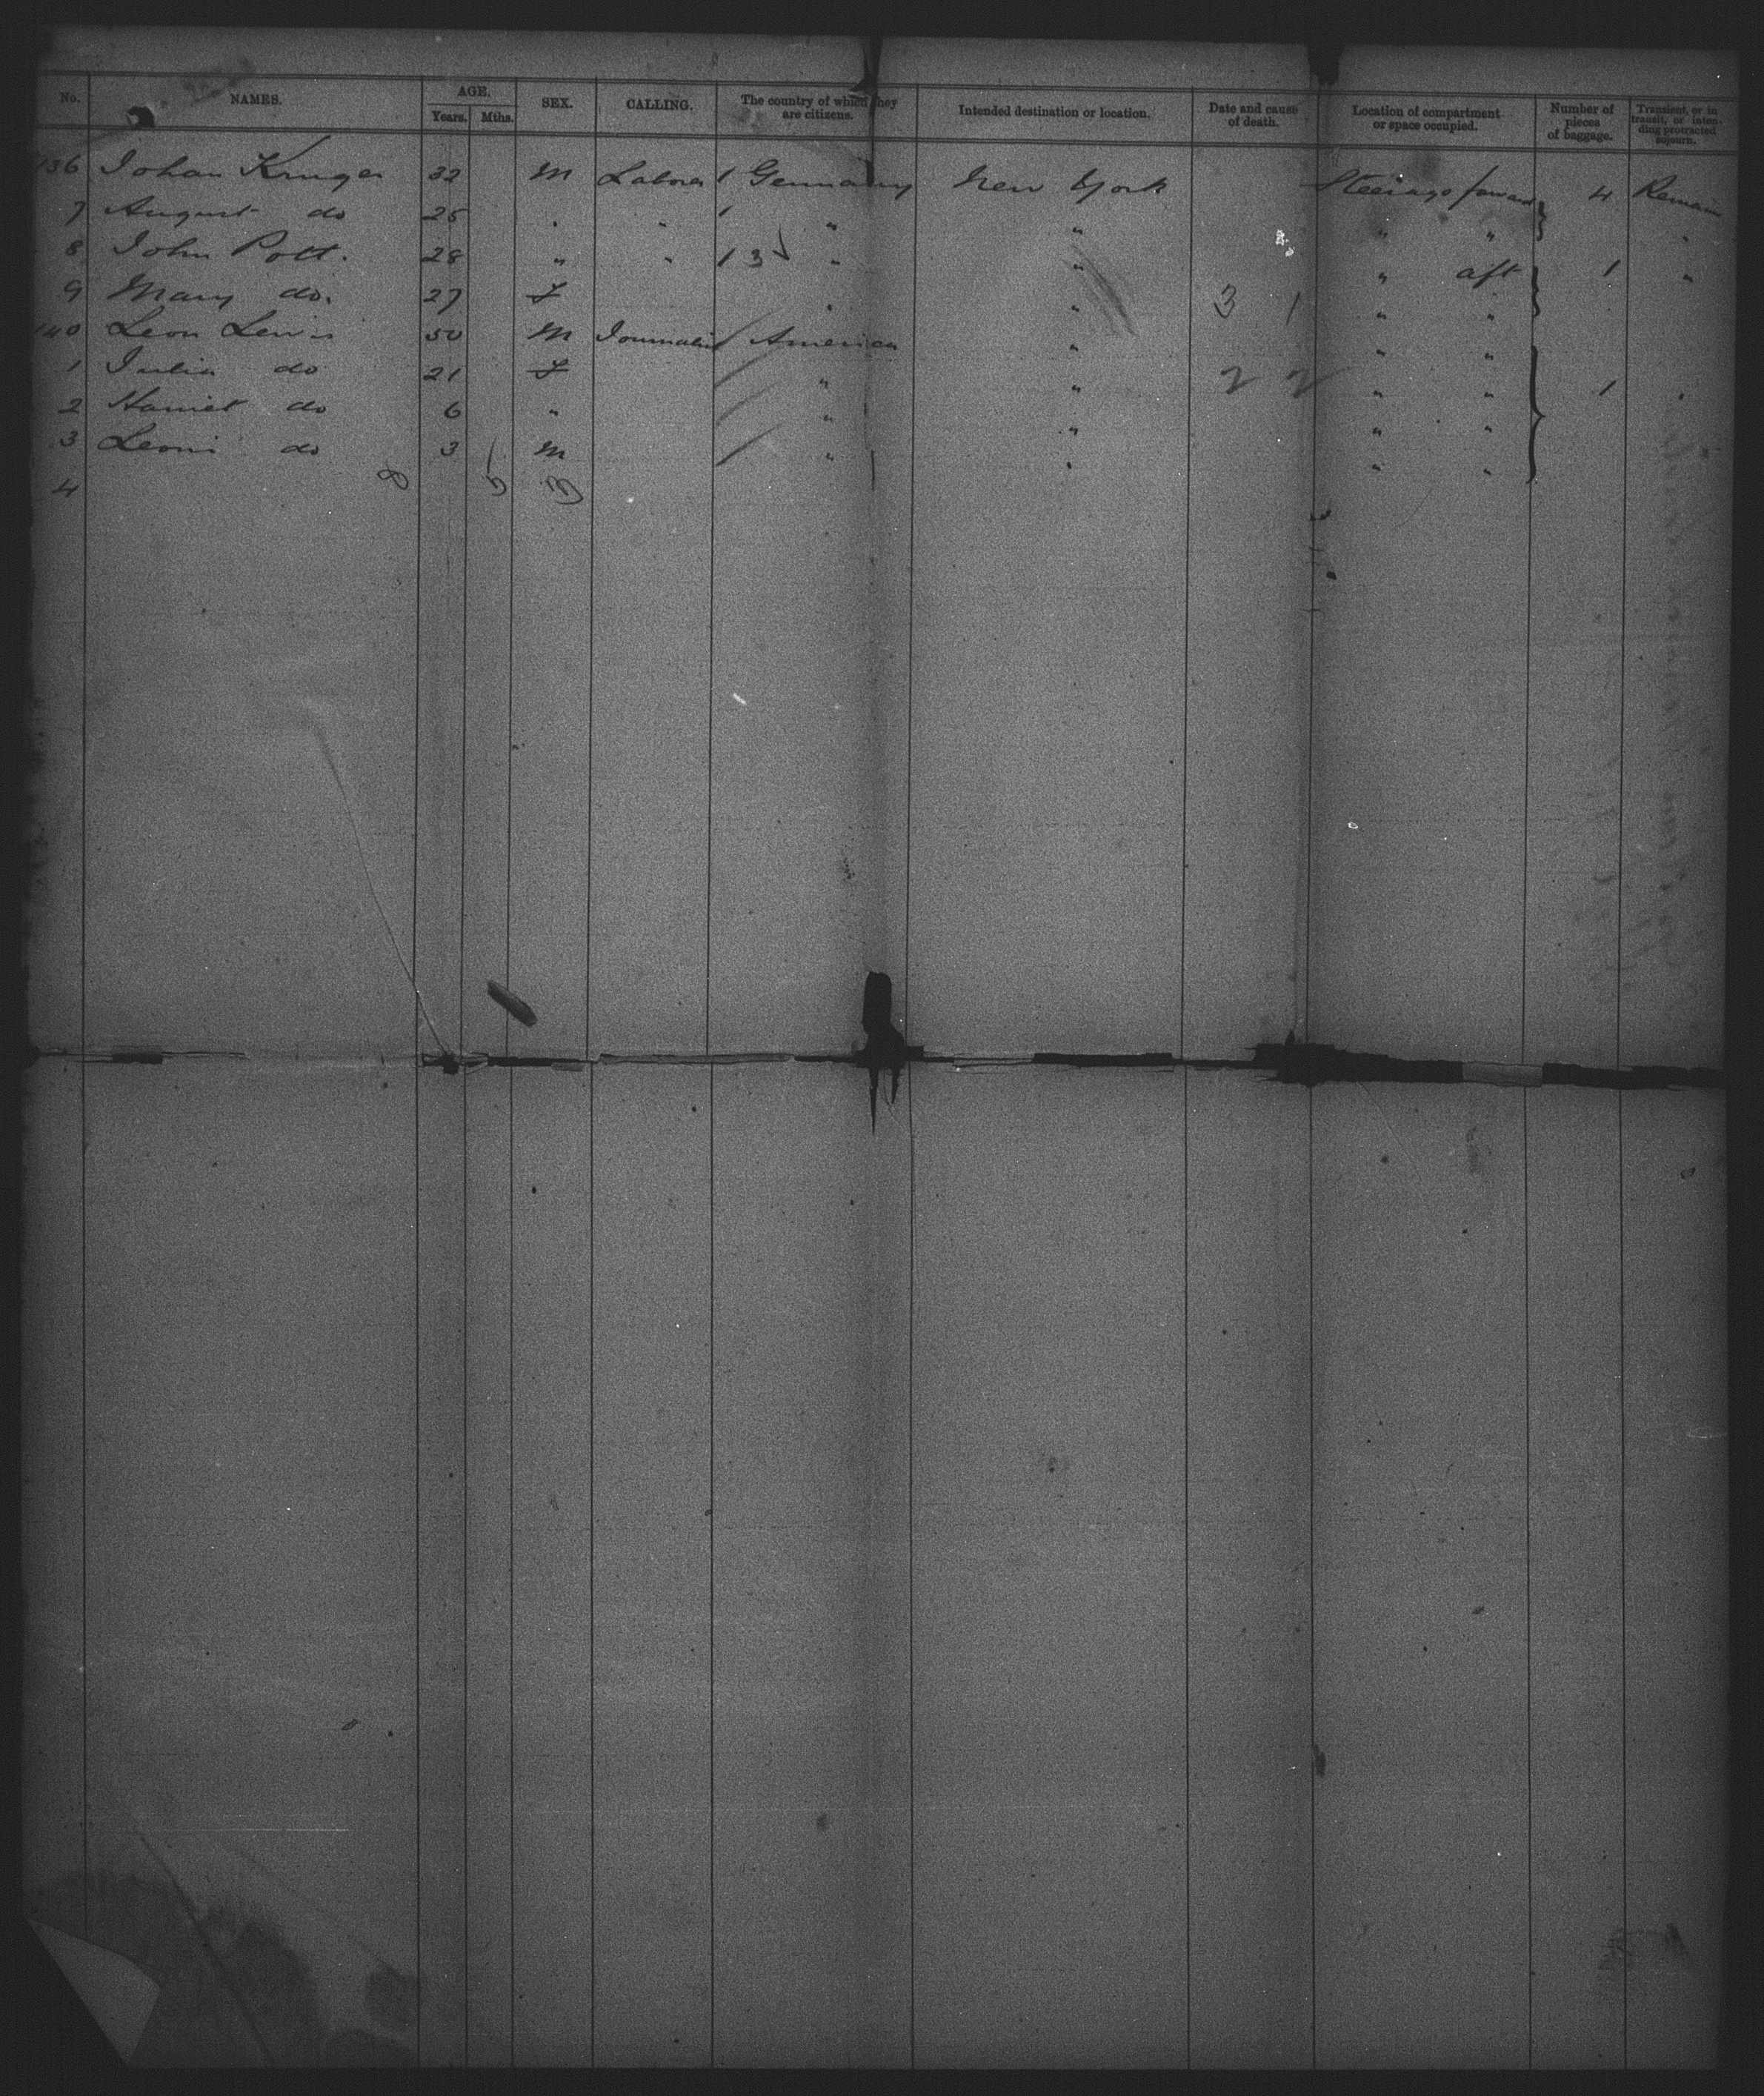 No. NAMES. AGE. Years. Mths. SEX. CALLING. The country of which they are citizens. Intended destination or location. Date and cause of death. Location of compartment or space occupied. Number of pieces of baggage. Transient, or in transit, or intending protracted sojourn.
136 Johan Kruger 32 M Laborer 1 Germany New York Steerage forward 4 Remain
7 August do 25 " " 1 " " " " "
8 John Pott. 28 " " 1 3 " " " aft 1 "
9 Mary do. 27 F " " 3 1 " "
140 Leon Lewis 50 M Journalist America " " "
1 Julia do 21 F " " 2 2 " " 1 "
2 Harriet do 6 " " " " "
3 Leoni do 3 M " " " "
4 8 5 3